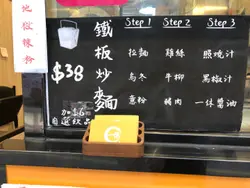 地獄辣粉
$38
加$6
自選飲品
鐵板炒麵
Step 1
拉麵
烏冬
意粉
Step 2
雞絲
牛柳
豬肉
Step 3
照燒汁
黑椒汁
一休醬油